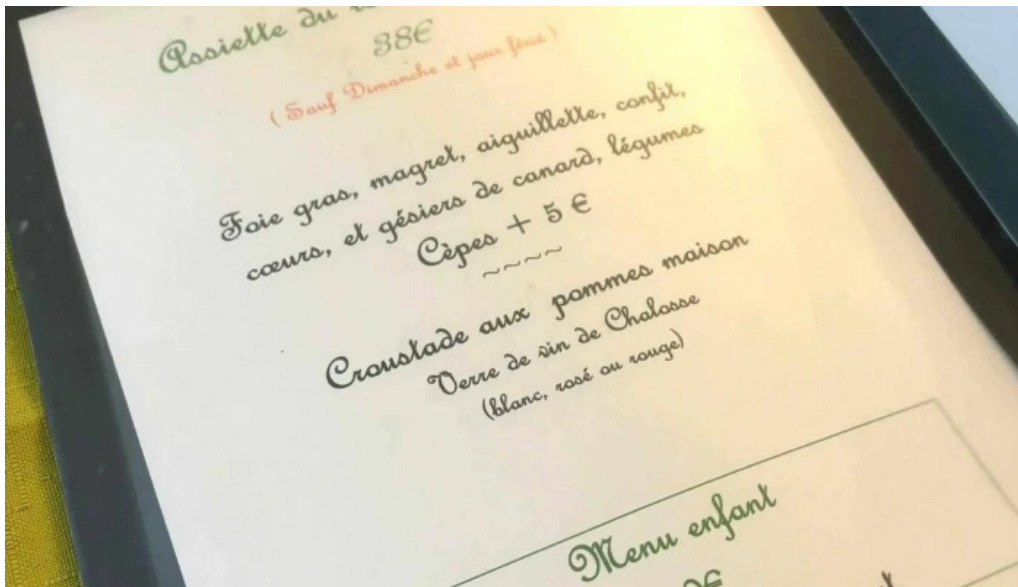 Assiette du
38€
(Sauf Dimanche et jour férié)
Foie gras, magret, aiguillette, confit,
cœurs, et gésiers de canard, légumes
Cèpes + 5 €
~~~~
Croustade aux pommes maison
Verre de vin de Chalosse
(blanc, rosé ou rouge)
Menu enfant